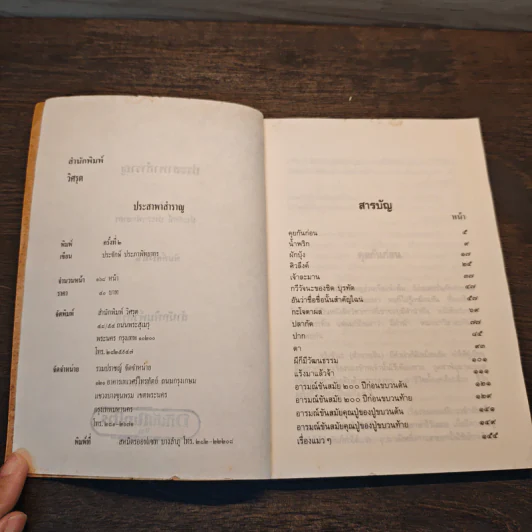 สำนักพิมพ์
วิศรุต
ประสาพาสำราญ
พิมพ์ ครั้งที่ ๒
เขียน ประจักษ์ ประภาพิทยากร
จำนวนหน้า หน้า
ราคา บาท
จัดพิมพ์ สำนักพิมพ์ วิศรุต
ถนนพระสุเมรุ
พระนคร กรุงเทพ
โทร.
จัดจำหน่าย รวมปราชญ์ จัดจำหน่าย
แขวงบางขุนพรม เขตพระนคร
กรุงเทพมหานคร
พิมพ์ที่ บางลำภู โทร.
สารบัญ
หน้า
คุยกันก่อน ๕
น้ำพริก ๙
ผักบุ้ง ๑๗
คิวลึงค์ ๒๕
เจ้าละมาน ๓๗
กวีวัจนะของชิต บุรทัต ๔๗
อันว่าชื่อชื่อนั้นสำคัญไฉน ๕๗
กะโจตาผล ๖๙
ปลากัด ๗๗
ปาก ๘๕
ตา ๙๓
ผีก็มีวัฒนธรรม ๑๐๑
แร้งมาแล้วจ้า ๑๑๑
อารมณ์ขันสมัย ๒๐๐ ปีก่อนขบวนต้น ๑๒๑
อารมณ์ขันสมัย ๒๐๐ ปีก่อนขบวนท้าย ๑๓๑
อารมณ์ขันสมัยคุณปู่ของปู่ขบวนต้น ๑๔๑
อารมณ์ขันสมัยคุณปู่ของปู่ขบวนท้าย ๑๔๙
เรื่องแมว ๆ ๑๕๕